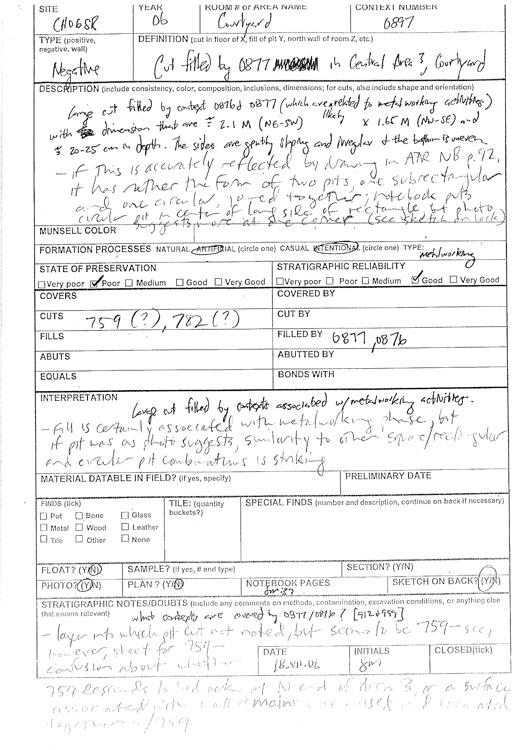 SITE YEAR ROOM # or AREA NAME CONTEXT NUMBER
CH06SR 06 Courtyard 0897
TYPE (positive, negative, wall) DEFINITION (cut in floor of X, fill of pit Y, north wall of room Z, etc.)
Negative Cut filled by 0877 in Central Area 3, Courtyard
DESCRIPTION (include consistency, color, composition, inclusions, dimensions; for cuts, also include shape and orientation)
Large cut filled by context 0876 & 0877 (which are related to metalworking activities)
likely
with dimension that are ≈ 2.1 M (NE-SW) x 1.65 M (NW-SE) and
≈ 20-25 cm in depth. The sides are gently sloping and irregular & the bottom is uneven
- if this is accurately reflected by drawing in ATR NB p.92,
it has rather the form of two pits, one subrectangular
and one circular, joined together; notebook puts
circular pit in center of long side of rectangle but photo
suggests more at one corner (see sketch on back)
MUNSELL COLOR
FORMATION PROCESSES NATURAL ARTIFICIAL (circle one) CASUAL INTENTIONAL (circle one) TYPE: metalworking
STATE OF PRESERVATION STRATIGRAPHIC RELIABILITY
Very poor Poor Medium Good Very Good Very poor Poor Medium Good Very Good
COVERS COVERED BY
CUTS 759 (?), 782 (?) CUT BY
FILLS FILLED BY 0877, 0876
ABUTS ABUTTED BY
EQUALS BONDS WITH
INTERPRETATION
Large cut filled by contexts associated w/metalworking activities.
- Fill is certainly associated with metalworking phase, but
if pit was as photo suggests, similarity to other square/rectangular
and circular pit combinations is striking
MATERIAL DATABLE IN FIELD? (if yes, specify) PRELIMINARY DATE
FINDS (tick) TILE: (quantity buckets?) SPECIAL FINDS (number and description, continue on back if necessary)
Pot Bone Glass
Metal Wood Leather
Tile Other None
FLOAT? (Y/N) SAMPLE? (if yes, # and type) SECTION? (Y/N)
PHOTO? (Y/N) PLAN? (Y/N) NOTEBOOK PAGES SKETCH ON BACK? (Y/N)
STRATIGRAPHIC NOTES/DOUBTS (include any comments on methods, contamination, excavation conditions, or anything else
that seems relevant) what contexts are covered by 0877/0876?
- layer into which pit cut not noted, but seems to be 759 - see,
however, sheet for 759 -
confusion about whether
DATE INITIALS CLOSED(tick)
18.VII.06
759 N end of Area 3, or a surface
associated with wall remains missed and excavated
together w/759